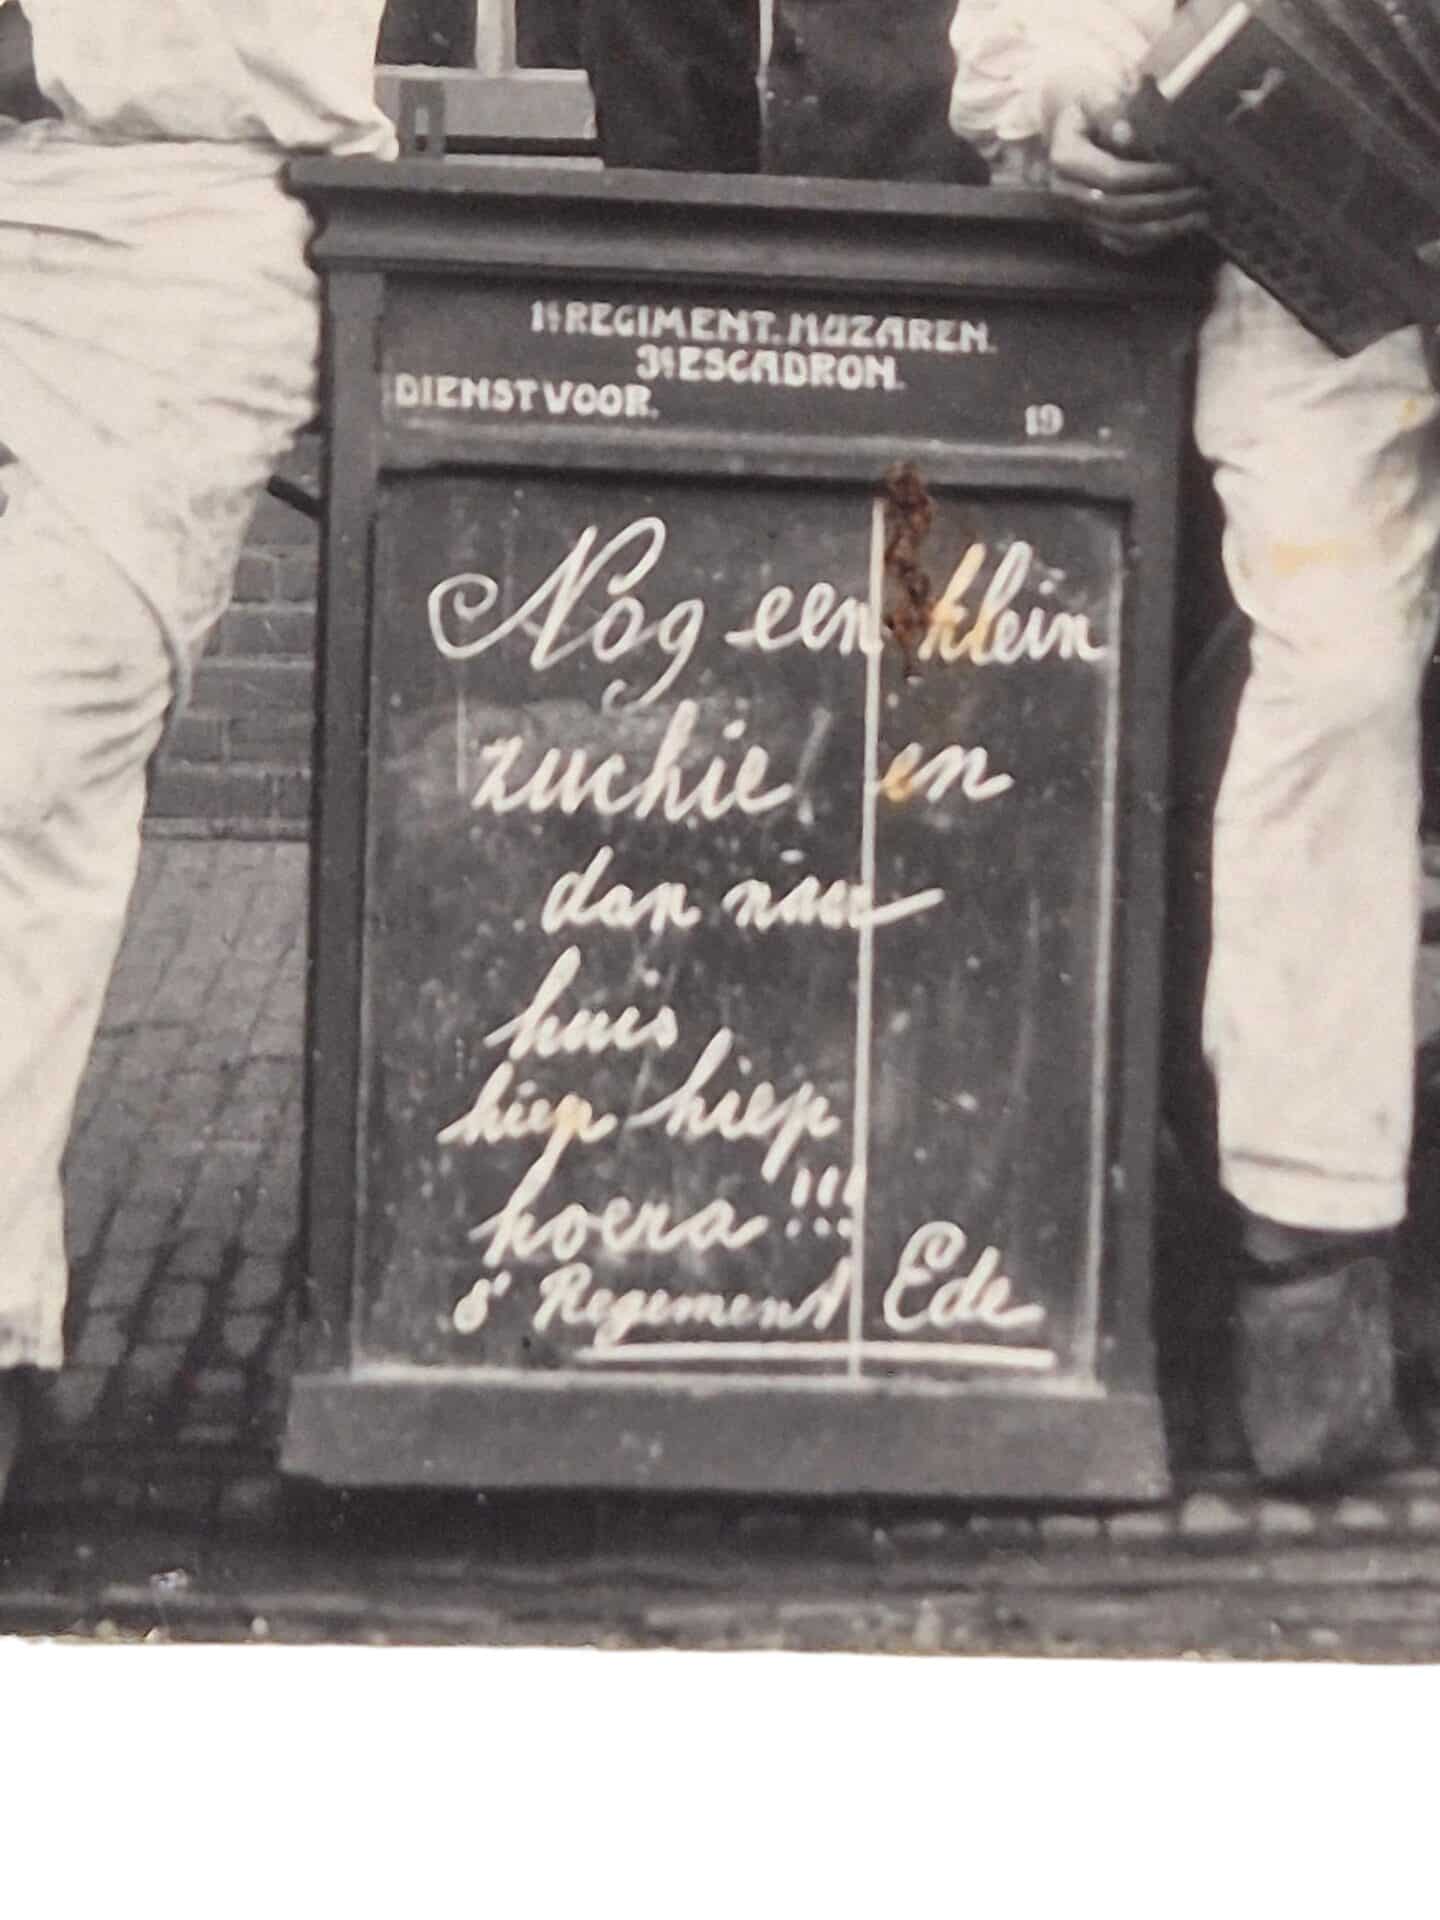 1e REGIMENT. HUZAREN.
3e ESCADRON.
DIENST VOOR. 19
Nog een klein
zuchie en
dan naar
huis
hiep hiep
hoera!!!
8e Regement Ede